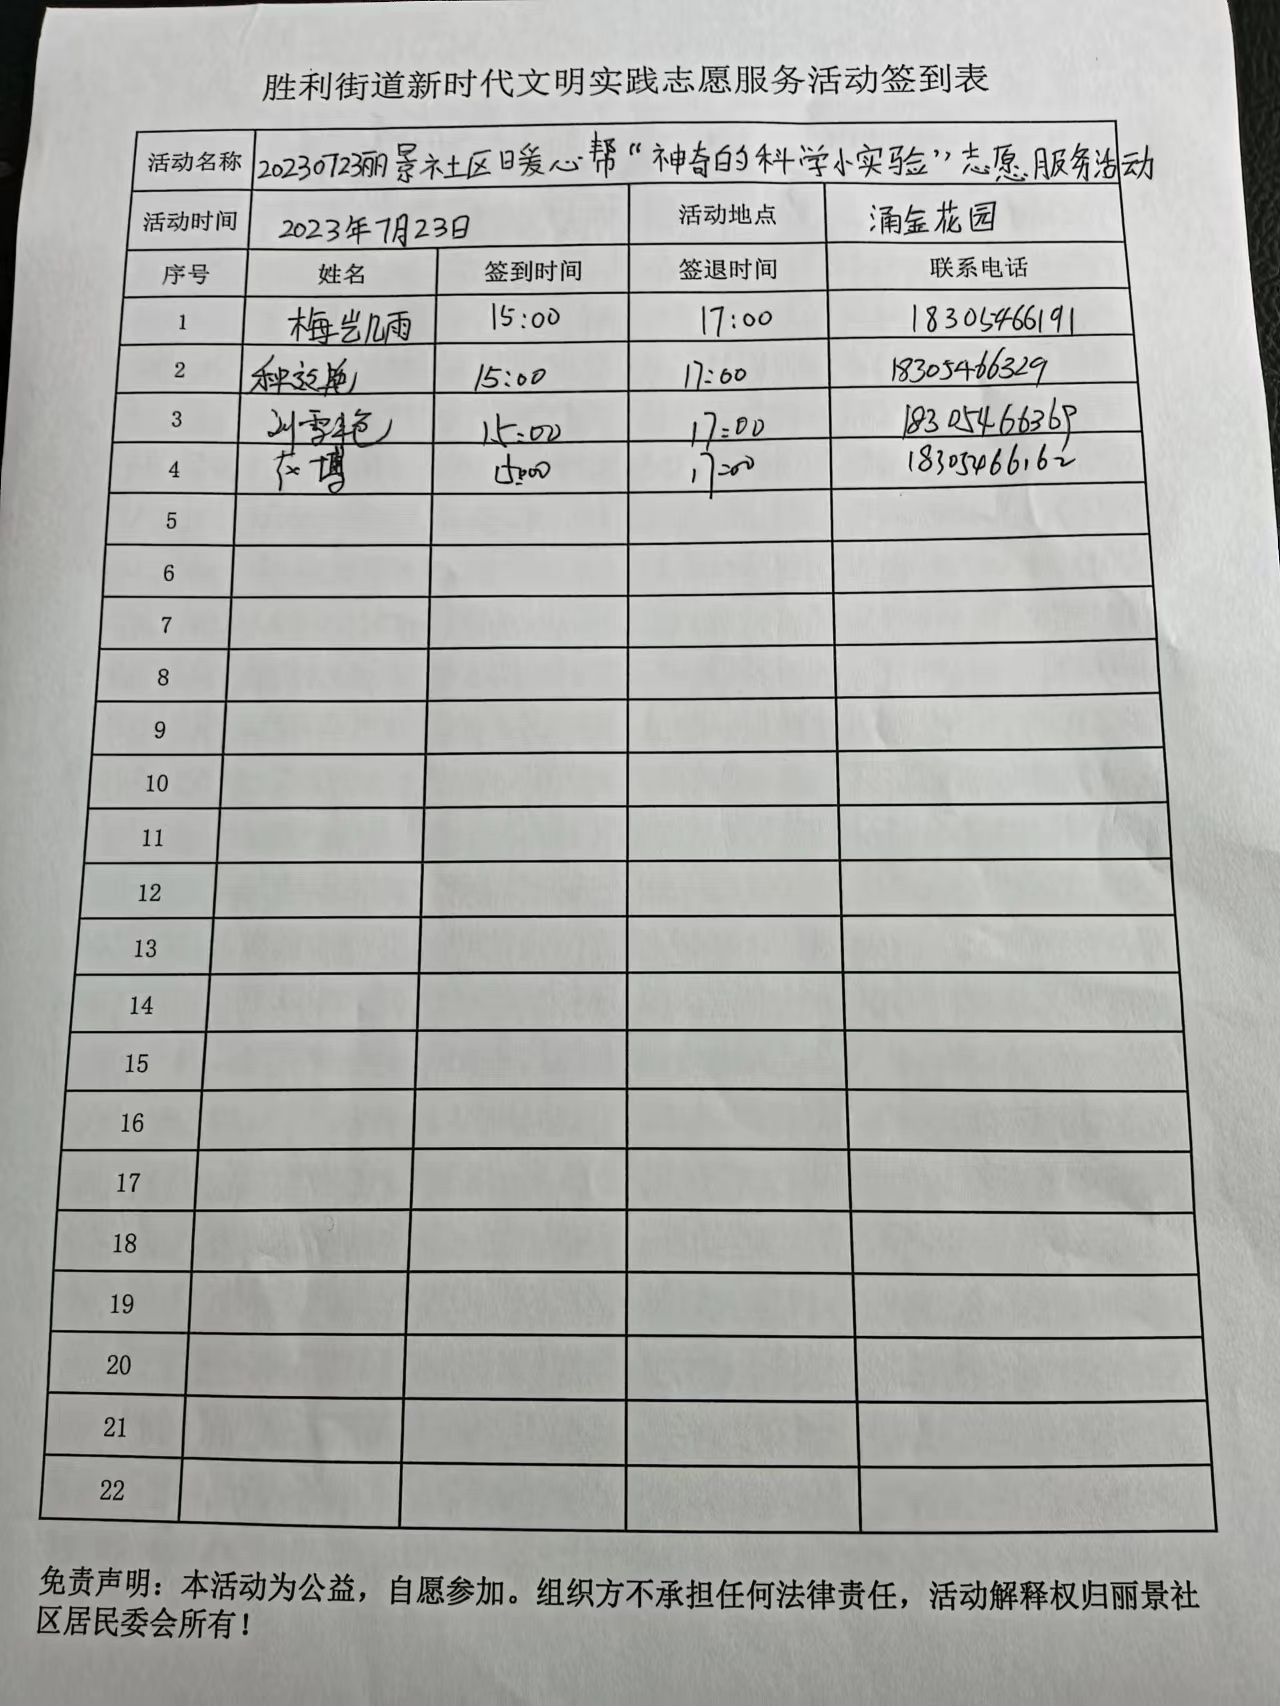 胜利街道新时代文明实践志愿服务活动签到表
活动名称 20230723丽景社区暖心帮“神奇的科学小实验”志愿服务活动
活动时间 2023年7月23日 活动地点 涌金花园
序号 姓名 签到时间 签退时间 联系电话
1 梅岂凡雨 15:00 17:00 18305466191
2 15:00 17:00 18305466329
3 刘雪艳 15:00 17:00 18305466369
4 博 15:00 17:00 18305466162
5
6
7
8
9
10
11
12
13
14
15
16
17
18
19
20
21
22
免责声明：本活动为公益，自愿参加。组织方不承担任何法律责任，活动解释权归丽景社
区居民委会所有！